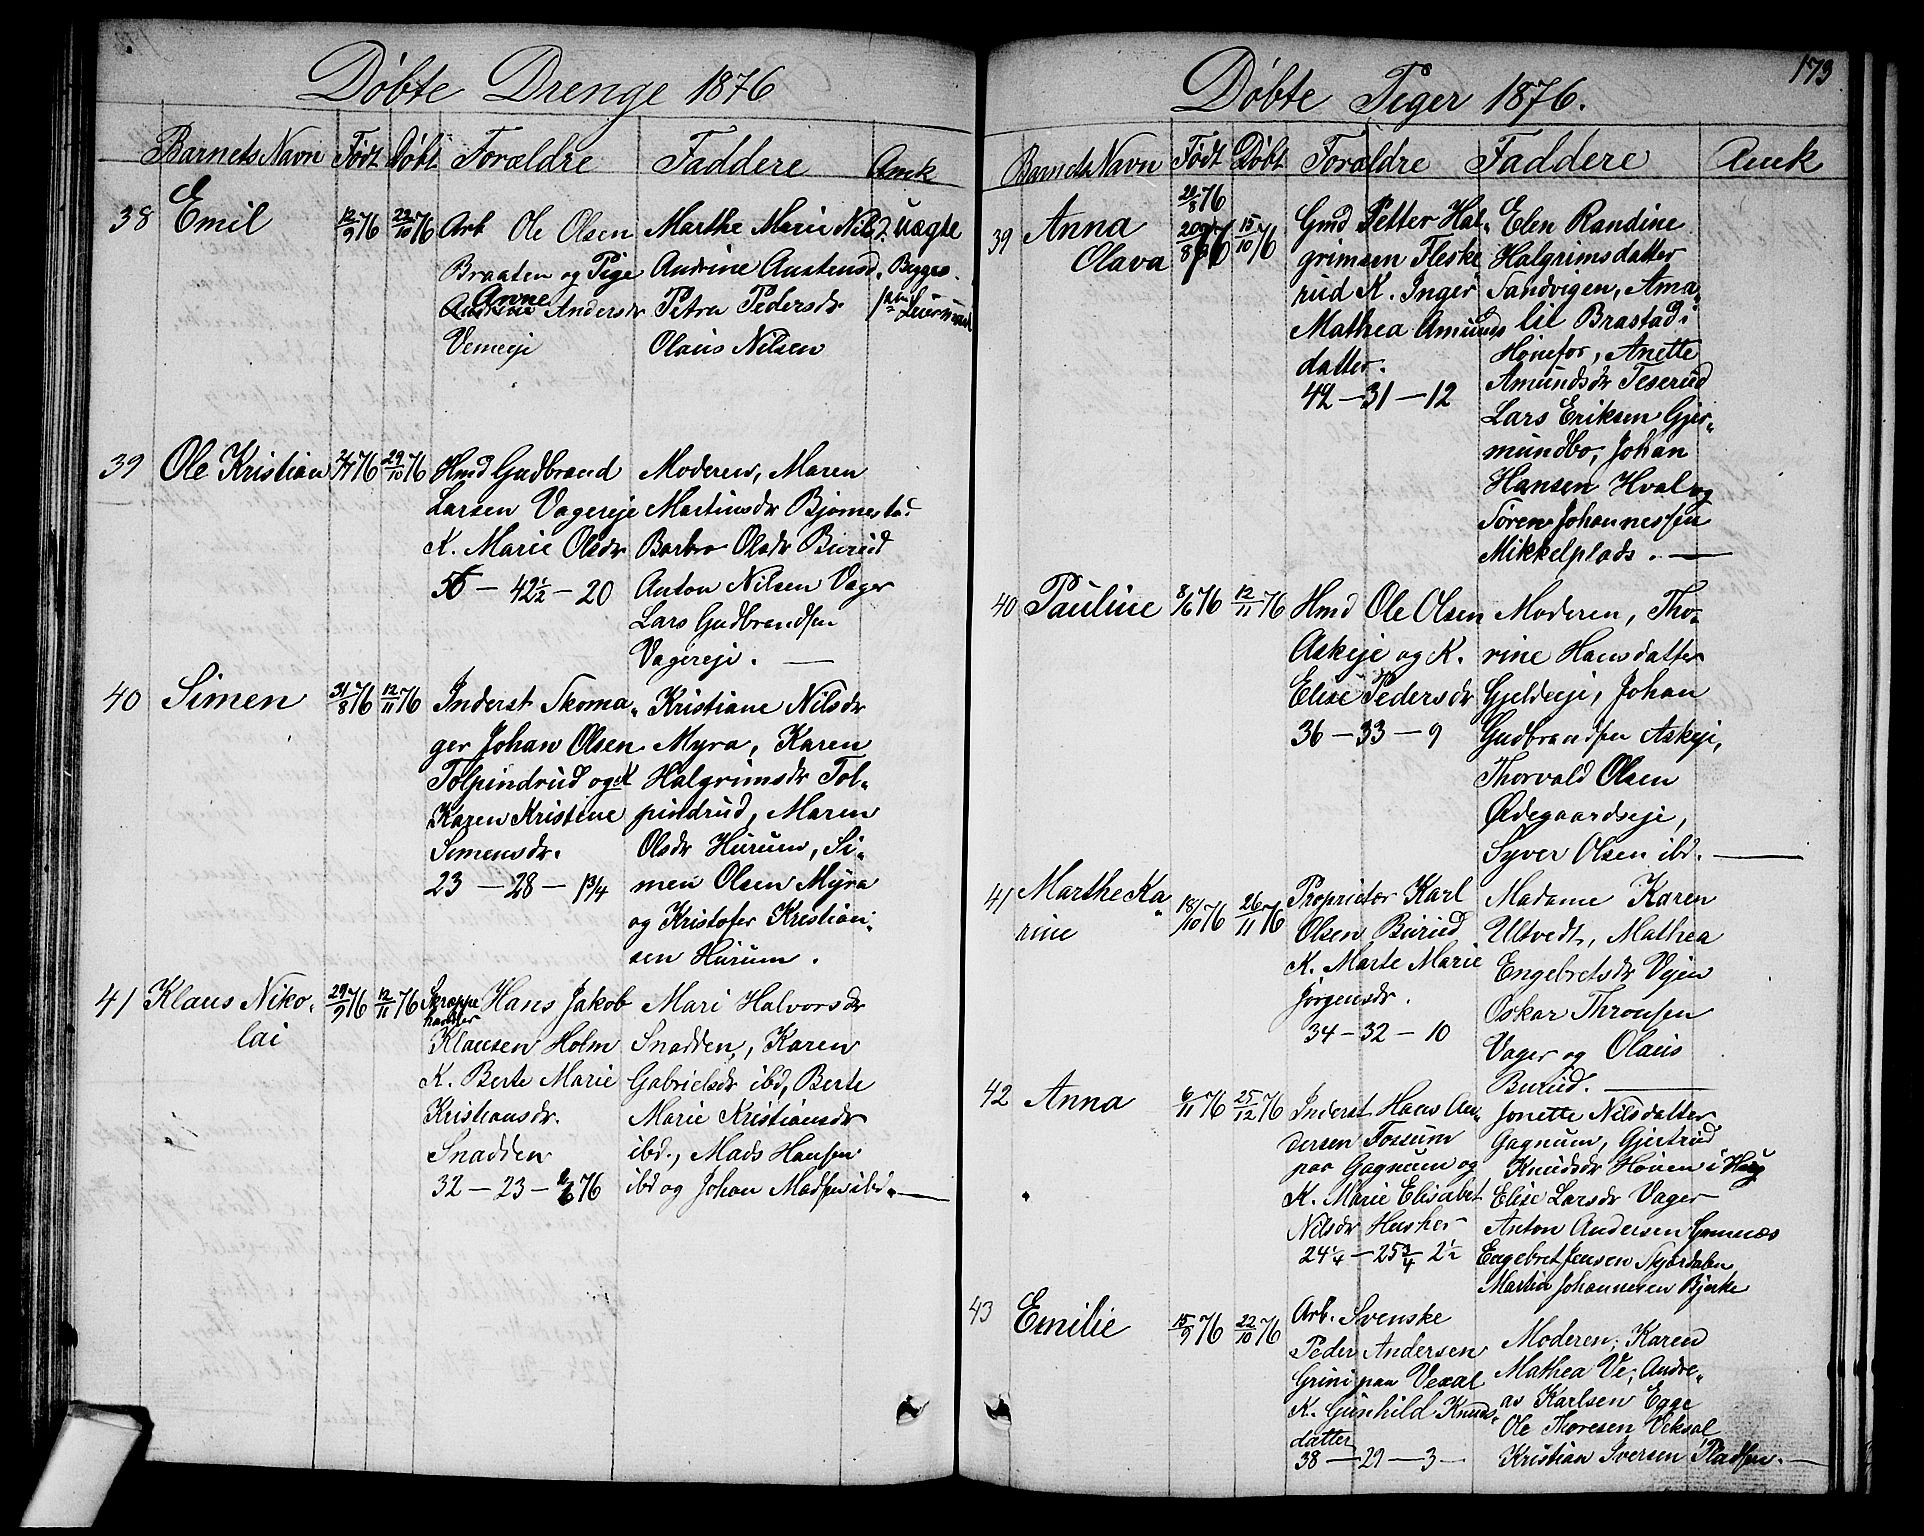 Døbte Drenge 1876
Barnets Navn Født Døbt Forældre Faddere Amk
38 Emil 12/9 76 22/10 76 Arb Ole Olsen Marthe Marie Nilsd. uægte
Braaten og Pige Andrine Austensd.
Anne Andersdr Petra Pedersdr
Olaus Nilsen
39 Ole Kristian 76 29/10 76 Hmd Gudbrand Moderen, Maren
Larsen Vagereje Martinsdr Bjørnesta.
K. Marie Olsdr Barbro Olsdr Burud
42½ - 20 Anton Nilsen Vager
Lars Gudbrandsen
Vagereje. —
40 Simen 31/8 76 12/11 76 Inderst Skoma„ Kristiane Nilsdr
ger Johan Olsen Myra, Karen
Tolpindrud og K Halgrimsdr Tol„
Karen Kristine pindrud, Maren
Simensdr. Olsdr Hurum, Si„
23 — 28 — 1¾ men Olsen Myra
og Kristofer Kristian„
sen Hurum.
41 Klaus Niko„ 29/9 76 12/11 76 Skræppe Hans Jakob Mari Halvorsdr
lai handler
Klausen Holm Snadden, Karen
K. Berte Marie Gabrielsdr ibd, Berte
Kristiansdr. Marie Kristiansdr
Snadden ibd., Mads Hansen
32 — 23 — 76 ibd og Johan Madsen ibd. —
173
Døbte Piger 1876.
Barnets Navn Født Døbt Forældre Faddere Amk
20/8 76
39 Anna 20/8 76 15/10 76 Gmd Petter Hal„ Elen Randine
Olava grimsen Fleske Halgrimsdatter
rud K. Inger Sandvigen, Ama„
Mathea Amunds lie Brastad i
datter. Hønefos, Anette
42 — 31 — 12 Amundsdr Teserud
Lars Eriksen Gjer„
mundbo, Johan
Hansen Hval og
Søren Johannessen
Mikkelplads. —
40 Pauline 8/6 76 12/11 76 Hmd Ole Olsen Moderen, Tho„
Askeje og K. rine Hansdatter
Elise Pedersdr Gjeldeje, Johan
36 — 33 — 9 Gudbrandsen Askeje,
Thorvald Olsen
Ødegaardseje,
Syver Olsen ibd. —
41 Marthe Ka„ 18/10 76 26/11 76 Proprietær Karl Madame Karen
rine Olsen Burud Ultvedt, Mathea
K. Marte Marie Engebretsdr Vejen
Jørgensdr. Oskar Thronsen
34 — 32 — 10 Vager og Olaus
Burud. —
42 Anna 6/11 76 25/12 76 Inderst Hans An„ Jonette Nilsdatter
dersen Fossum Gagnum, Gjertrud
paa Gagnum og Knudsdr Houen i Haug
K. Marie Elisabet Elise Larsdr Vager
Nilsdr Husher Anton Andersen
24¼ — 25¾ 2½ Engebret Jensen
Martin Johannesen Bjerke
43 Emilie 15/9 76 22/10 76 Arb. Svenske
Peder Andersen Moderen, Karen
Grini paa Vexal Mathea Ve, Andre„
K. Gunhild Knuds„ as Karlsen Egge
datter Ole Thoresen Veksal
38 — 29 — 3 — Kristian Iversen Pladsen. —